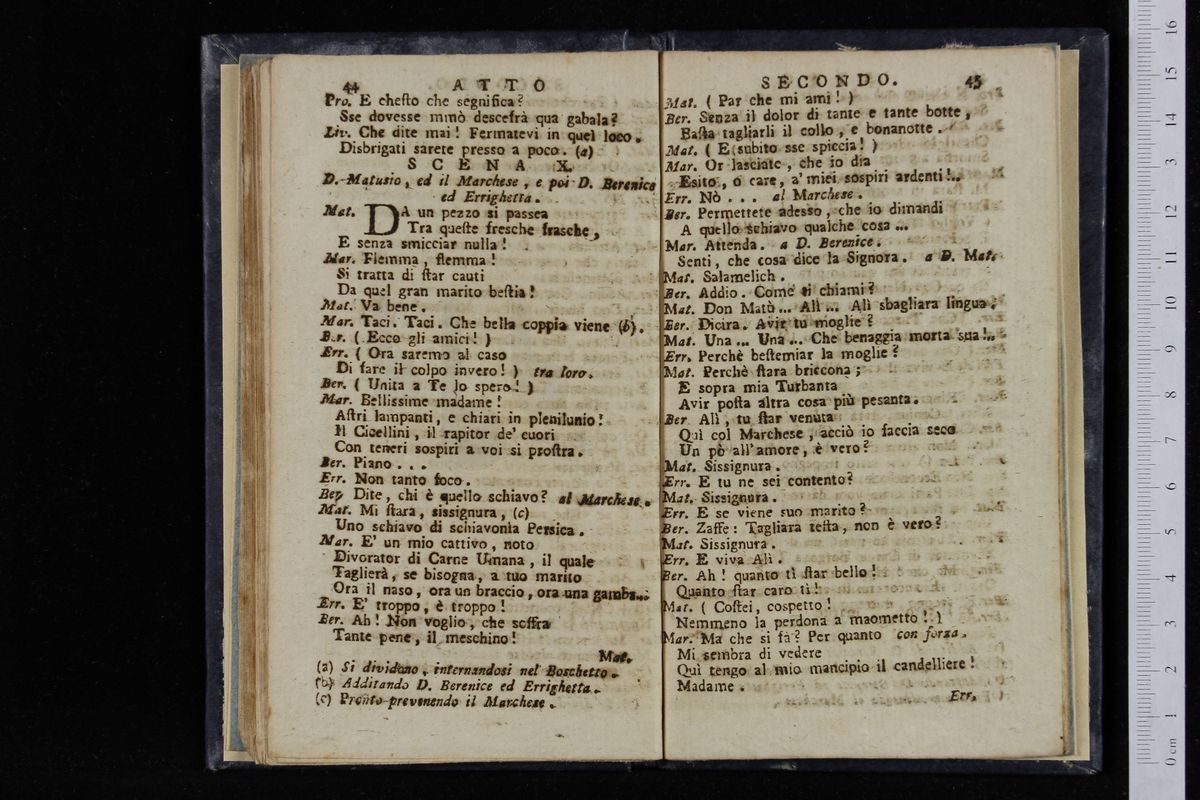 44 ATTO
Pro. E chesto che segnifica?
Sse dovesse mmò descefrà qua gabala?
Liv. Che dite mai! Fermatevi in quel loco.
Disbrigati sarete presso a poco. (a)
SCENA X.
D. Matusio, ed il Marchese, e poi D. Berenice
ed Errighetta.
Mat. DA un pezzo si passea
Tra queste fresche frasche,
E senza smicciar nulla!
Mar. Flemma, flemma!
Si tratta di star cauti
Da quel gran marito bestia!
Mat. Va bene.
Mar. Taci. Taci. Che bella coppia viene (b).
Ber. (Ecco gli amici!)
Err. (Ora saremo al caso
Di fare il colpo invero!) tra loro.
Ber. (Unita a Te lo spero!)
Mar. Bellissime madame!
Astri lampanti, e chiari in plenilunio!
Il Cicellini, il rapitor de' cuori
Con teneri sospiri a voi si prostra.
Ber. Piano...
Err. Non tanto foco.
Ber. Dite, chi è quello schiavo? al Marchese.
Mat. Mi stara, sissignura, (c)
Uno schiavo di schiavonia Persica.
Mar. E' un mio cattivo, noto
Divorator di Carne Umana, il quale
Taglierà, se bisogna, a tuo marito
Ora il naso, ora un braccio, ora una gamba...
Err. E' troppo, è troppo!
Ber. Ah! Non voglio, che soffra
Tante pene, il meschino!
Mat.
(a) Si dividono, internandosi nel Boschetto.
(b) Additando D. Berenice ed Errighetta.
(c) Pronto prevenendo il Marchese.
SECONDO. 45
Mat. (Par che mi ami!)
Ber. Senza il dolor di tante e tante botte,
Basta tagliarli il collo, e bonanotte.
Mat. (E subito sse spiccia!)
Mar. Or lasciate, che io dia
Esito, o care, a' miei sospiri ardenti!..
Err. Nò... al Marchese.
Ber. Permettete adesso, che io dimandi
A quello schiavo qualche cosa...
Mar. Attenda. a D. Berenice.
Senti, che cosa dice la Signora. a D. Mat.
Mat. Salamelich.
Ber. Addio. Come ti chiami?
Mat. Don Matù... Alì... Alì sbagliara lingua.
Ber. Dicira. Avir tu moglie?
Mat. Una... Una... Che benaggia morta sua!..
Err. Perchè bestemiar la moglie?
Mat. Perchè stara briccona;
E sopra mia Turbanta
Avir posta altra cosa più pesanta.
Ber Alì, tu star venuta
Quì col Marchese, acciò io faccia seco
Un pò all'amore, è vero?
Mat. Sissignura.
Err. E tu ne sei contento?
Mat. Sissignura.
Err. E se viene suo marito?
Ber. Zaffe: Tagliara testa, non è vero?
Mat. Sissignura.
Err. E viva Alì.
Ber. Ah! quanto tì star bello!
Quanto star caro tì!
Mat. (Costei, cospetto!
Nemmeno la perdona a maometto!)
Mar. Ma che si fà? Per quanto con forza.
Mi sembra di vedere
Quì tengo al mio mancipio il candelliere!
Madame.
Err.
0 cm 1 2 3 4 5 6 7 8 9 10 11 12 13 14 15 16